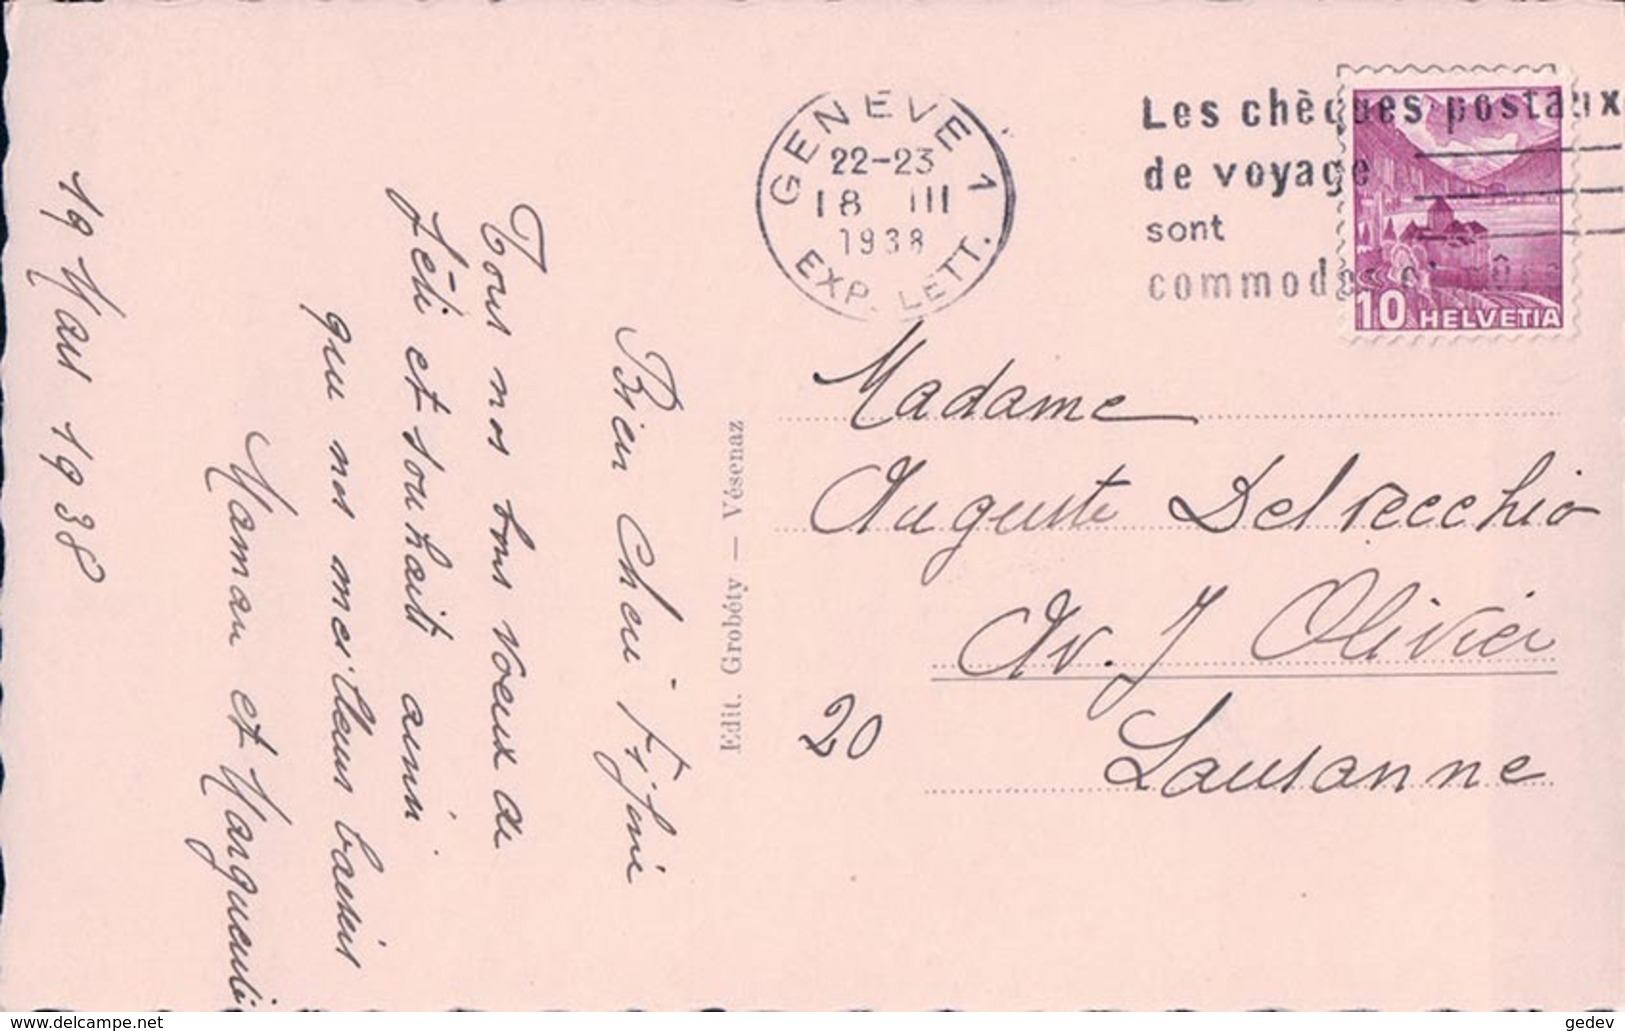 GENÈVE 1
22-23
18 III
1938
EXP. LETT.
Les chèques postaux
de voyage
sont
commodes et sûrs
10 HELVETIA
Madame
Auguste Delvecchio
Av. J Olivier
20
Lausanne
Edit. Grobéty — Vésenaz
Bien cheu
Tous nos bons voeux de
fête et souhaits ainsi
que nos meilleurs baisers
Maman et Marguerite
19 Mars 1938
www.delcampe.net
gedev